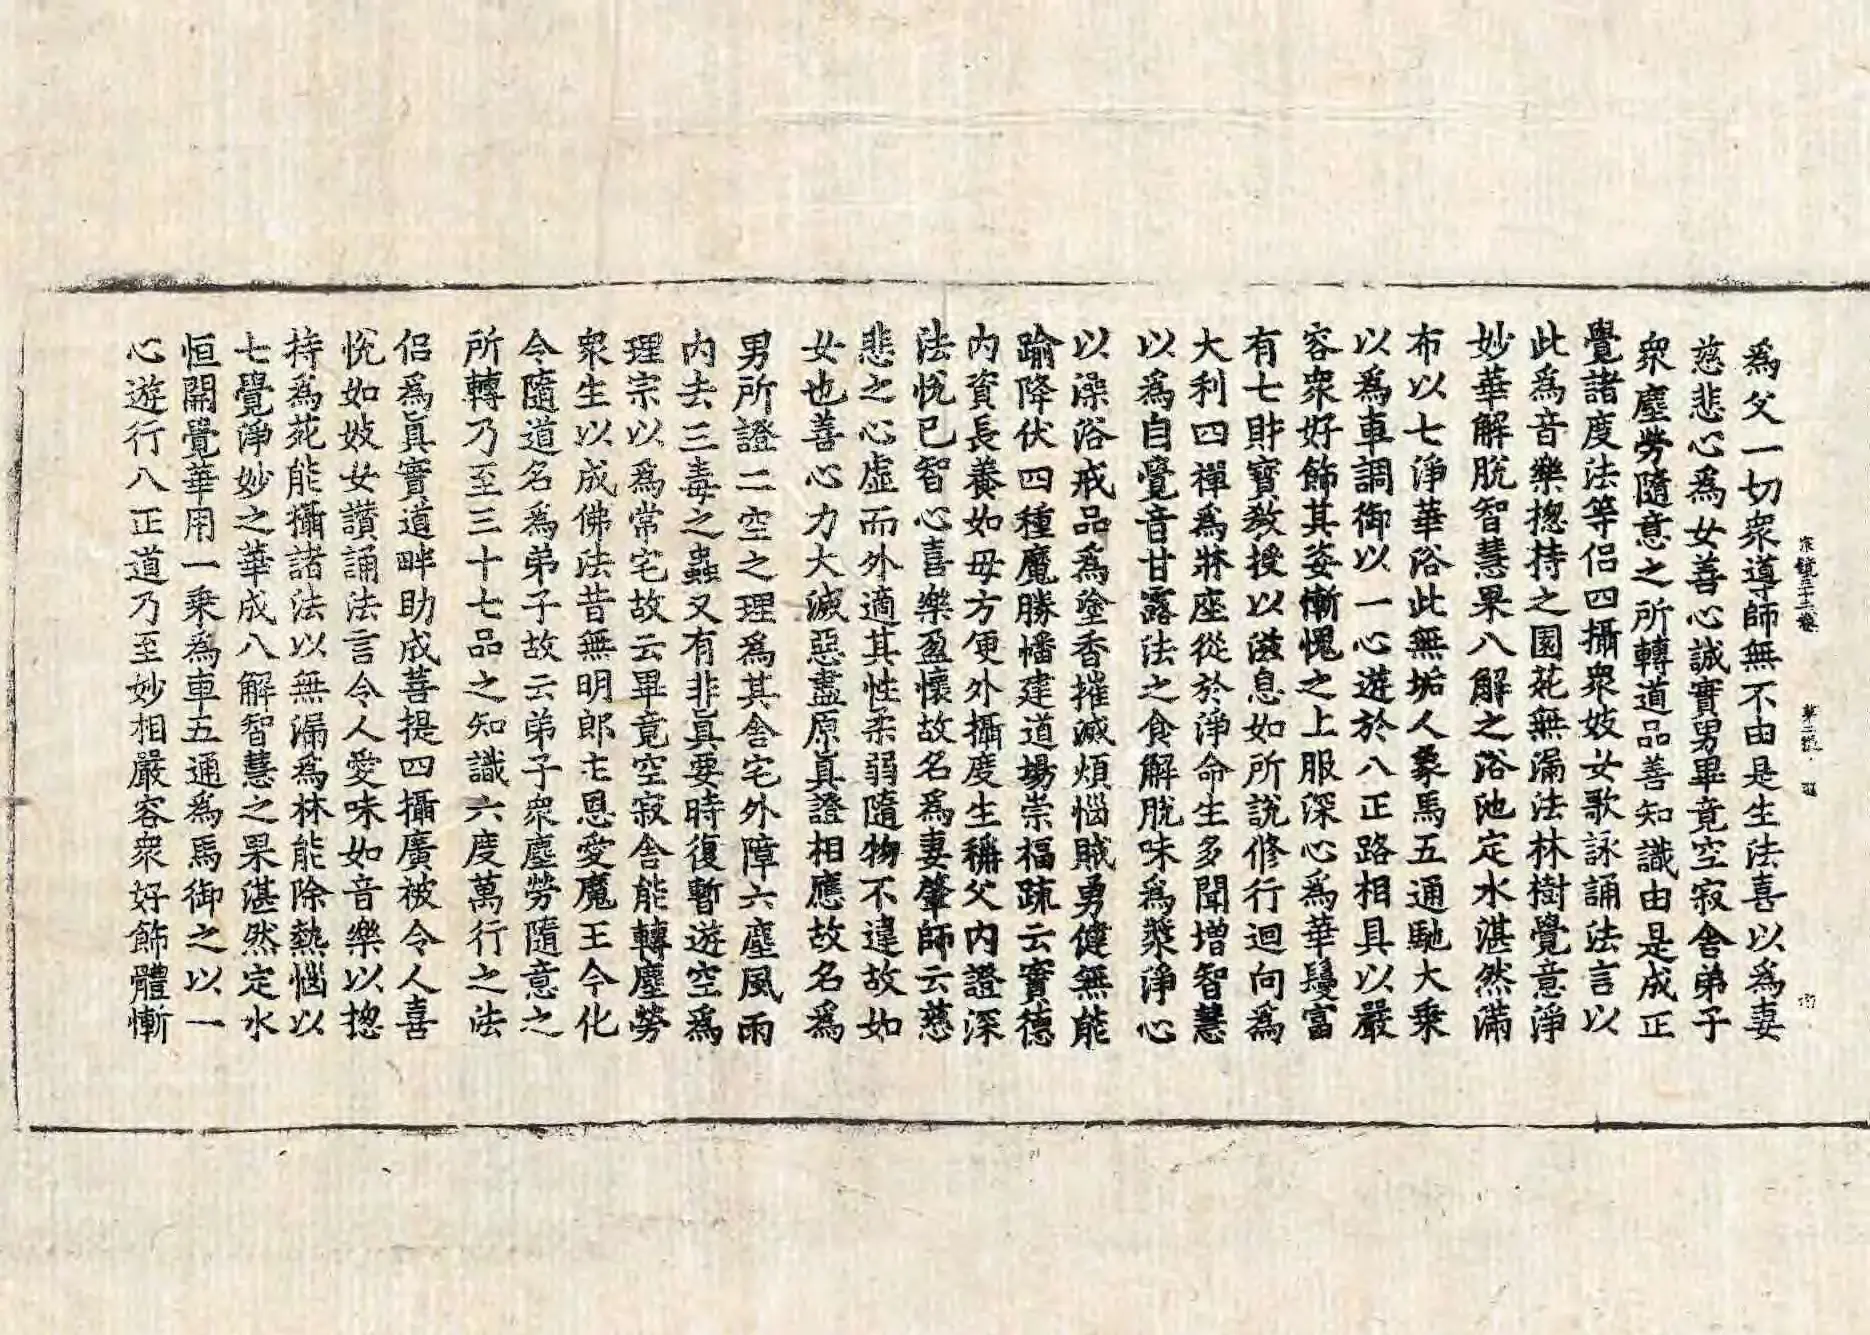 宗鏡三十三卷 第二張
爲父一切衆導師無不由是生法喜以爲妻
慈悲心爲女善心誠實男畢竟空寂舍弟子
衆塵勞隨意之所轉道品善知識由是成正
覺諸度法等侣四攝衆妓女歌詠誦法言以
此爲音樂摠持之園苑無漏法林樹覺意淨
妙華解脫智慧果八解之浴池定水湛然滿
布以七淨華浴此無垢人象馬五通馳大乘
以爲車調御以一心遊於八正路相具以嚴
容衆好飾其姿慚愧之上服深心爲華鬘富
有七財寶教授以滋息如所說修行迴向爲
大利四禪爲牀座從於淨命生多聞增智慧
以爲自覺音甘露法之食解脫味爲漿淨心
以澡浴戒品爲塗香摧滅煩惱賊勇健無能
踰降伏四種魔勝幡建道場崇福疏云實德
内資長養如母方便外攝度生稱父内證深
法悅已智心喜樂盈懷故名爲妻肇師云慈
悲之心虛而外適其性柔弱隨物不違故如
女也善心力大滅惡盡原眞證相應故名爲
男所證二空之理爲其舍宅外障六塵風雨
内去三毒之蟲又有非眞要時復暫遊空爲
理宗以爲常宅故云畢竟空寂舍能轉塵勞
衆生以成佛法昔無明郎主恩愛魔王今化
令隨道名爲弟子故云弟子衆塵勞隨意之
所轉乃至三十七品之知識六度萬行之法
侣爲眞實道畔助成菩提四攝廣被令人喜
悅如妓女讚誦法言令人愛味如音樂以摠
持爲苑能攝諸法以無漏爲林能除熱惱以
七覺淨妙之華成八解智慧之果湛然定水
恒開覺華用一乘爲車五通爲馬御之以一
心遊行八正道乃至妙相嚴容衆好飾體慚